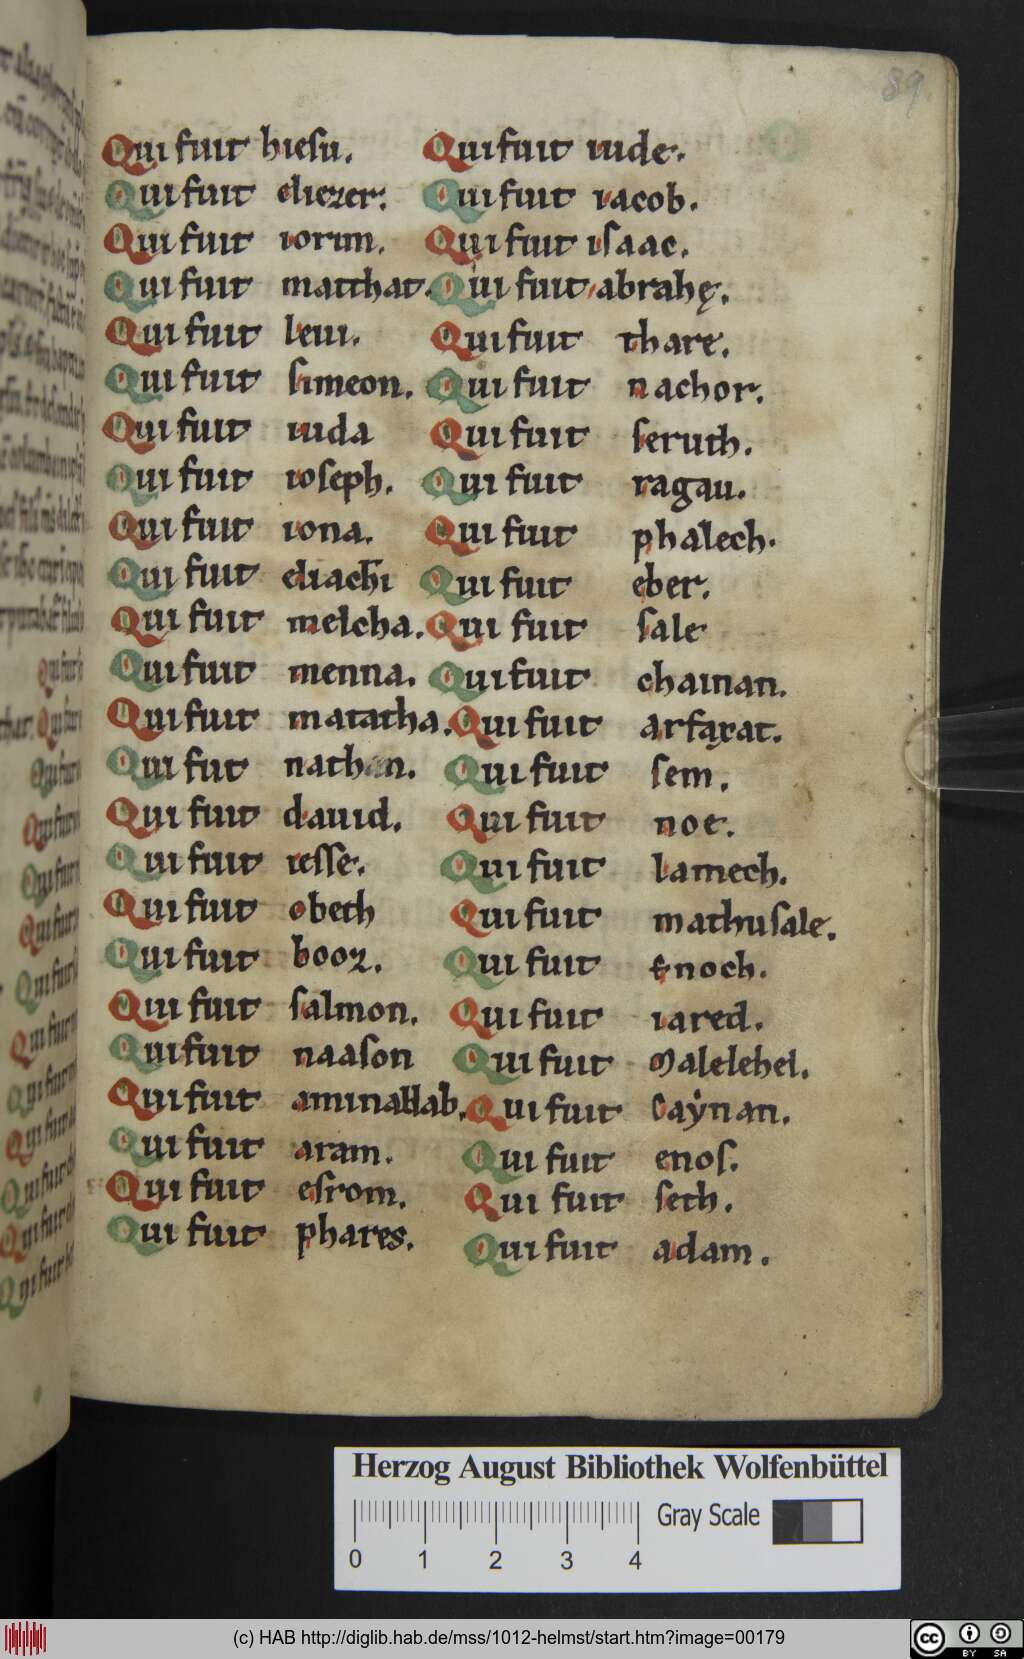 89
Qui fuit hiesu.
Qui fuit eliezer.
Qui fuit iorim.
Qui fuit matthat.
Qui fuit leui.
Qui fuit simeon.
Qui fuit iuda
Qui fuit ioseph.
Qui fuit iona.
Qui fuit eliachī
Qui fuit melcha.
Qui fuit menna.
Qui fuit matatha.
Qui fuit nathan.
Qui fuit dauid.
Qui fuit iesse.
Qui fuit obeth
Qui fuit booz.
Qui fuit salmon.
Qui fuit naason
Qui fuit aminadab.
Qui fuit aram.
Qui fuit esrom.
Qui fuit phares.
Qui fuit iude.
Qui fuit iacob.
Qui fuit isaac.
Qui fuit abrahę.
Qui fuit thare.
Qui fuit nachor.
Qui fuit seruth.
Qui fuit ragau.
Qui fuit phalech.
Qui fuit eber.
Qui fuit sale
Qui fuit chainan.
Qui fuit arfaxat.
Qui fuit sem.
Qui fuit noe.
Qui fuit lamech.
Qui fuit mathusale.
Qui fuit enoch.
Qui fuit iared.
Qui fuit Malelehel.
Qui fuit Caẏnan.
Qui fuit enos.
Qui fuit seth.
Qui fuit adam.
Herzog August Bibliothek Wolfenbüttel
Gray Scale
0 1 2 3 4
(c) HAB http://diglib.hab.de/mss/1012-helmst/start.htm?image=00179
cc BY SA